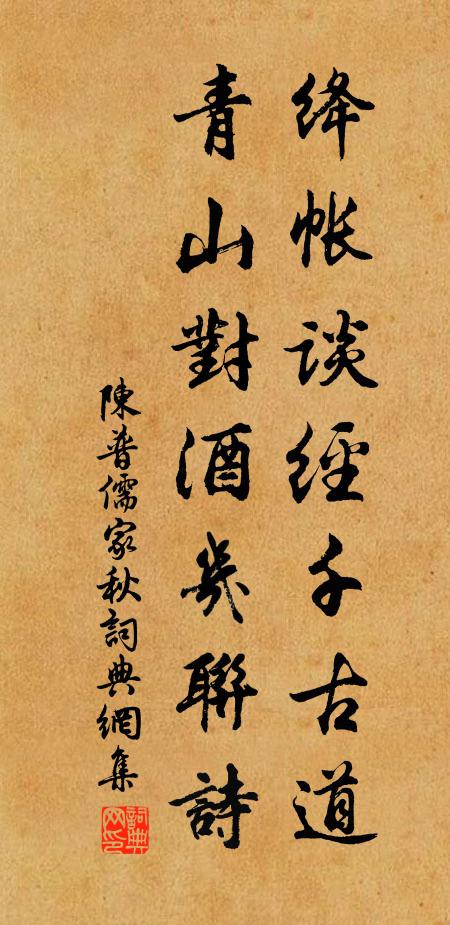 绛帐谈经千古道
青山對酒幾聯詩
陳普儒家秋詞典網集
詞典网印